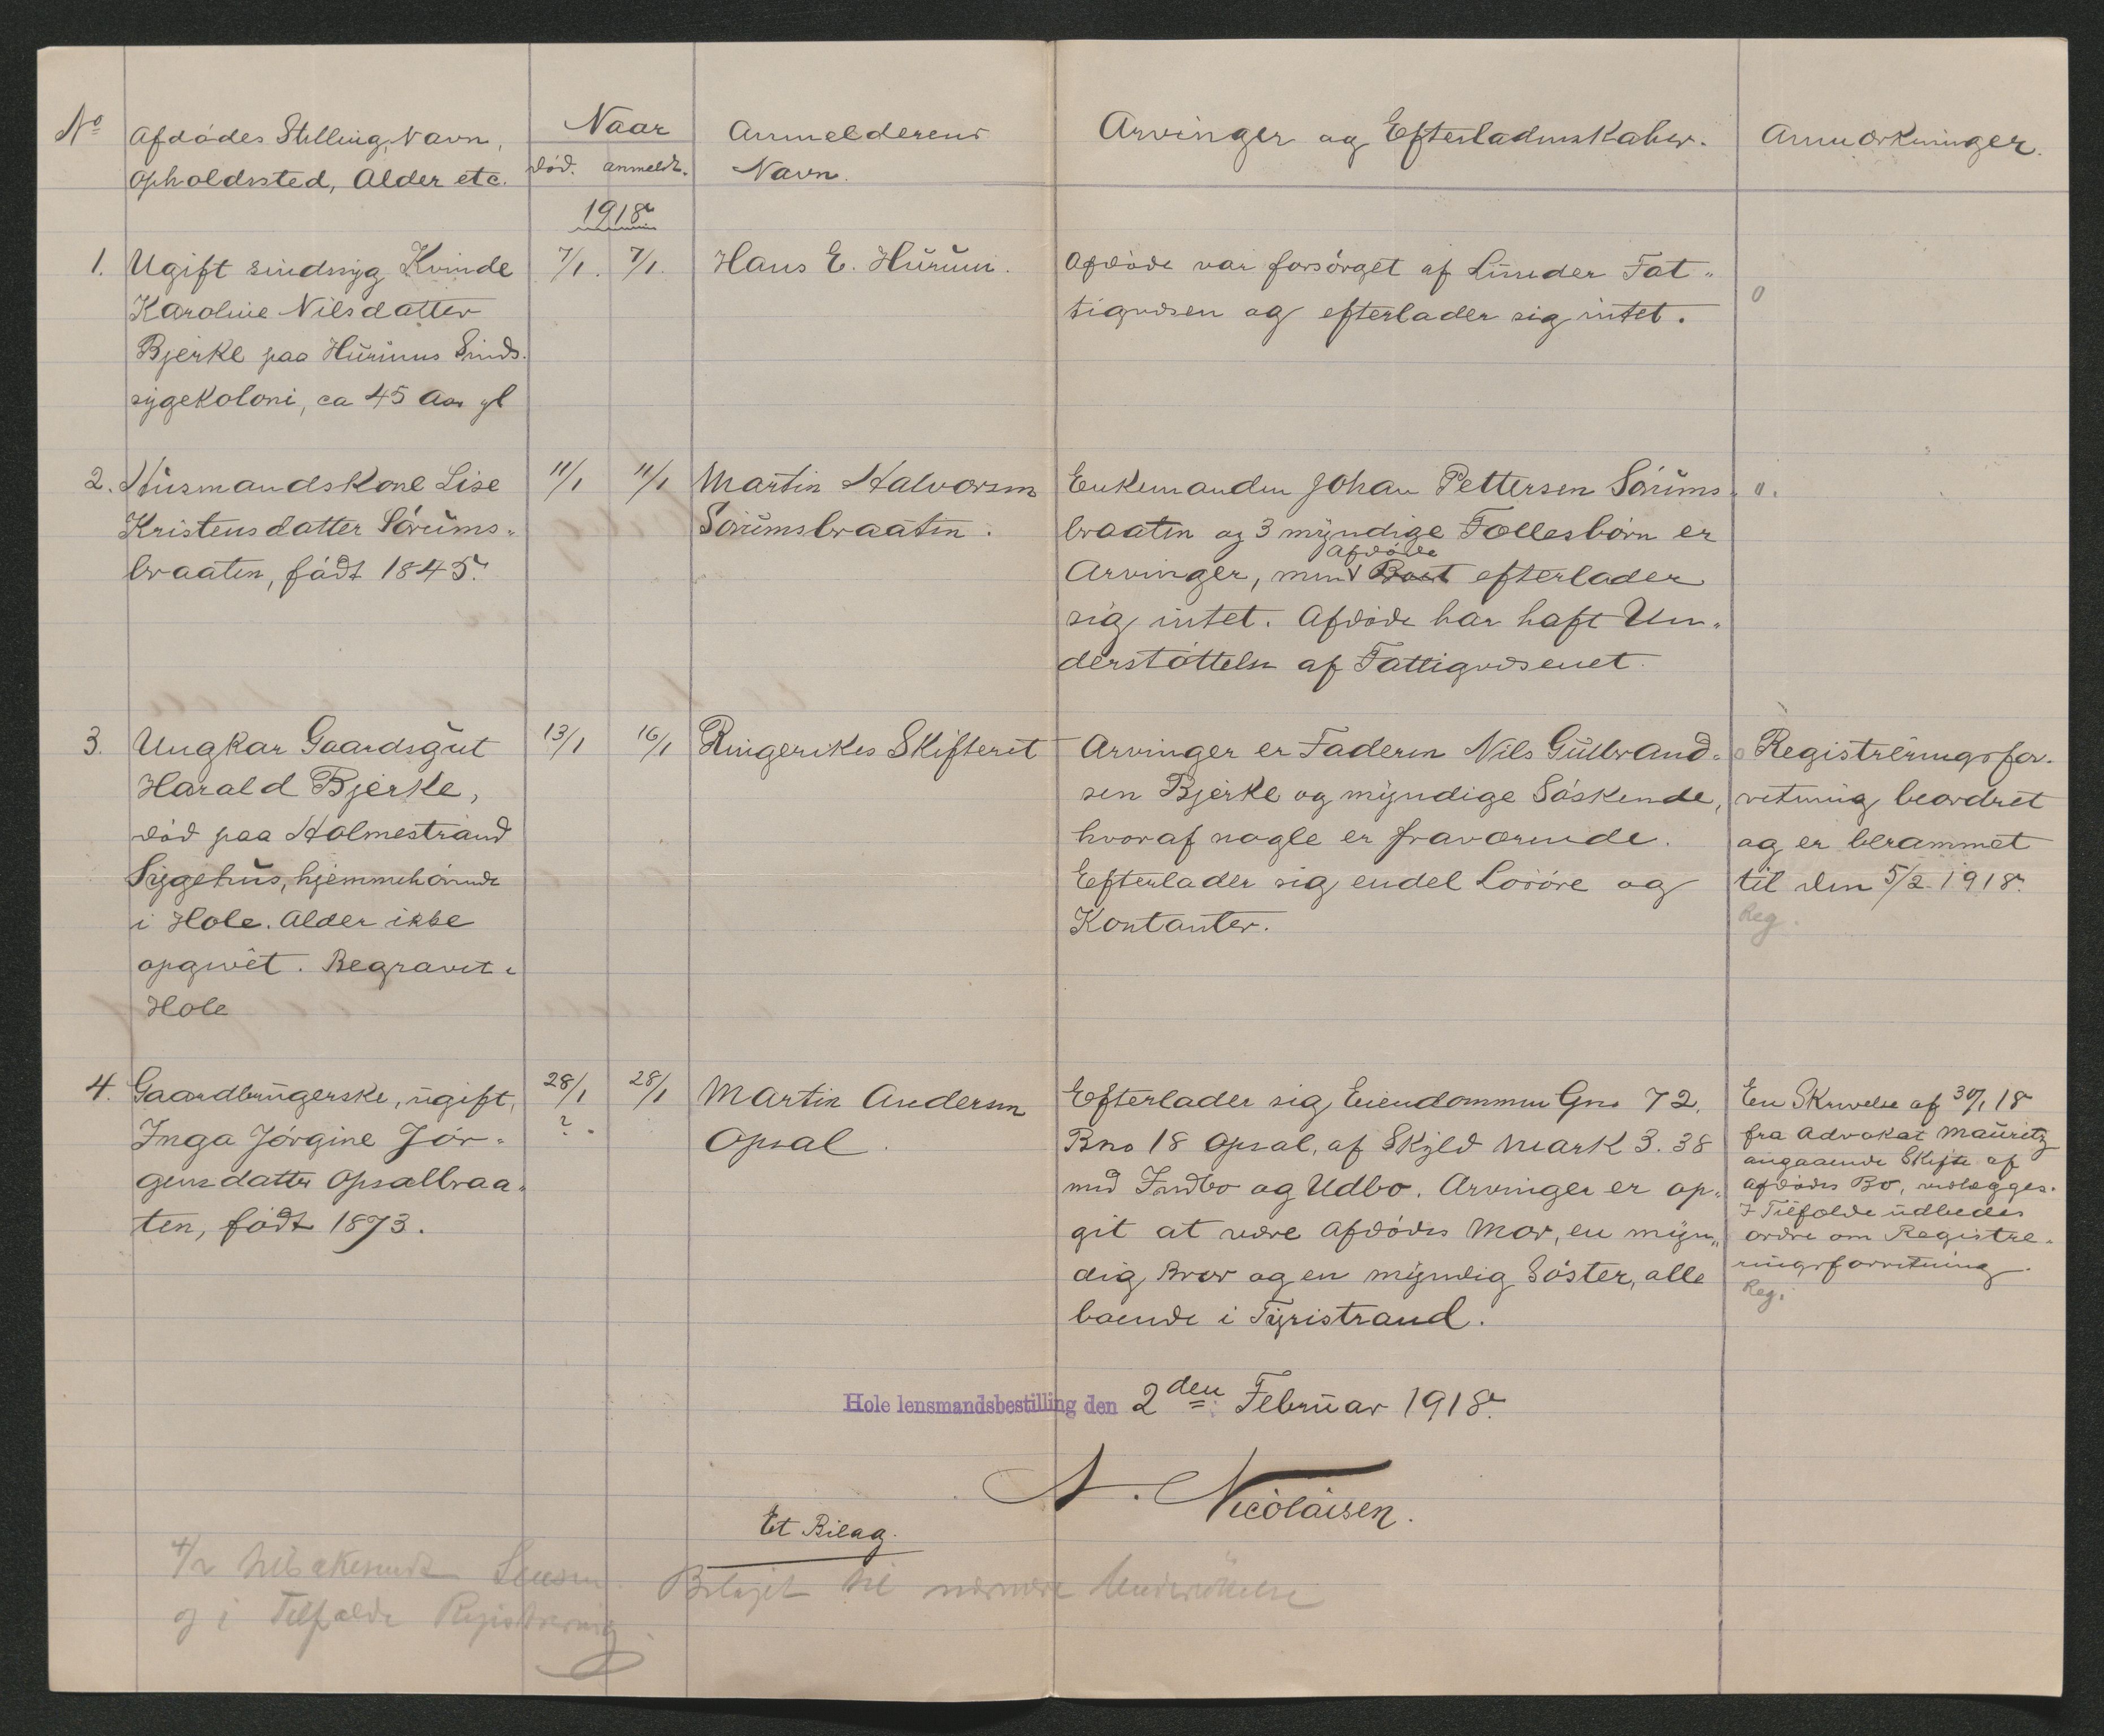 No
Afdödes Stilling, Navn,
Opholdssted, Alder etc.
Naar
död. anmeldt.
Anmelderens
Navn.
Arvinger og Efterladenskaber.
Anmærkninger.
1918.
1. Ugift sindssyg Kvinde
Karoline Nilsdatter
Bjerke paa Hurums Sinds-
sygekoloni, ca 45 Aar gl
7/1. 7/1.
Hans E. Hurum.
Afdöde var forsörget af Lunder Fat-
tigvæsen og efterlader sig intet.
0
2. Husmandskone Lise
Kristensdatter Sörums-
braaten, födt 1845.
11/1 11/1
Martin Halvorsen
Sörumsbraaten.
Enkemanden Johan Pettersen Sörums-
braaten og 3 myndige Fællesbörn er
Afdöde
Arvinger, men Boet efterlader
sig intet. Afdöde har haft Un-
derstöttelse af Fattigvæsenet.
0.
3. Ungkar Gaardsgut
Harald Bjerke,
död paa Holmestrand
Sygehus, hjemmehörende
i Hole. Alder ikke
opgivet. Begravet i
Hole
13/1 16/1
Ringerikes Skifteret
Arvinger er Faderen Nils Gulbrand-
sen Bjerke og myndige Söskende,
hvoraf nogle er fraværende.
Efterlader sig endel Lösöre og
Kontanter.
o Registreringsfor-
retning beordret
og er berammet
til den 5/2 1918.
Reg.
4. Gaardbrugerske, ugift,
Inga Jörgine Jör-
gensdatter Opsalbraa-
ten, födt 1873.
28/1 28/1
?
Martin Andersen
Opsal.
Efterlader sig Eiendommen Gno 72,
Bno 18 Opsal, af Skyld Mark 3.38
med Indbo og Udbo. Arvinger er op-
git at være Afdödes Mor, en myn-
dig Bror og en myndig Söster, alle
boende i Tyristrand.
En Skrivelse af 30/1 18
fra Advokat Mauritz
angaaende Skifte af
Afdödes Bo, vedlægges.
I Tilfælde udbedes
ordre om Registre-
ringsforretning.
Reg.
Hole lensmandsbestilling den 2den Februar 1918.
A. Nicolaisen.
Et Bilag.
4/2 tilbakesendt Lensm. Bilaget til nærmere Undersökelse
og i Tilfælde Registrering.